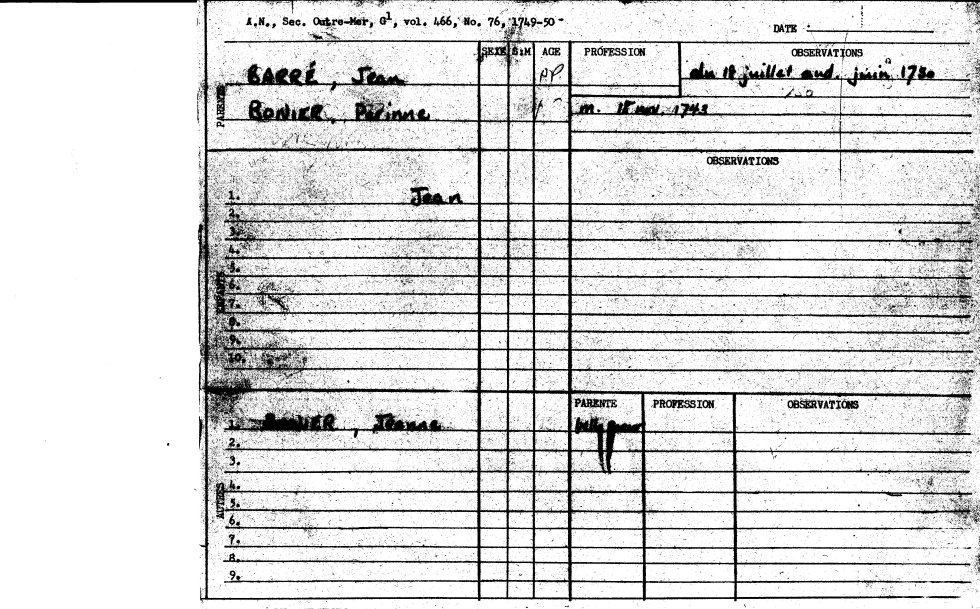 A.N., Sec. Outre-Mer, G1, vol. 466, No. 76, 1749-50
DATE :
SEXE S:M AGE PROFESSION OBSERVATIONS
PARENTS
BARRÉ, Jean AP. du 18 juillet aud. juin 1750
BONIER, Périnne m. 18 nov. 1743
OBSERVATIONS
ENFANTS
1. Jean
2.
3.
4.
5.
6.
7.
8.
9.
10.
PARENTE PROFESSION OBSERVATIONS
AUTRES
1. BONIER, Jeanne belle soeur
2.
3.
4.
5.
6.
7.
8.
9.